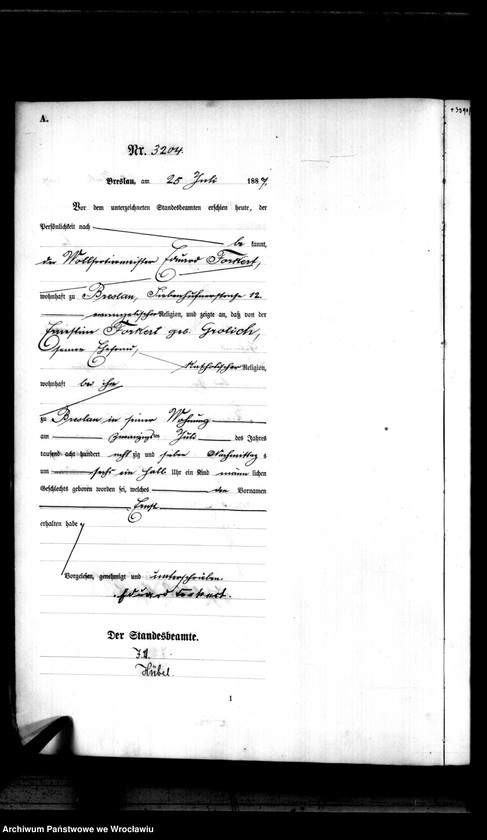 A.
Nr. 3204.
Breslau, am 25 Juli 1887.
Vor dem unterzeichneten Standesbeamten erschien heute, der
Persönlichkeit nach
be kannt,
der Eduard Forkert,
wohnhaft zu Breslau, Siebenhufenerstraße 12.
evangelischer Religion, und zeigte an, daß von der
Ernestine Forkert geb. Grolich,
seiner Ehefrau,
katholischer Religion,
wohnhaft bei ihm
zu Breslau in seiner Wohnung
am zwanzigsten Juli des Jahres
tausend acht hundert acht zig und sieben Nachmittag s
um sechs ein halb Uhr ein Kind männ lichen
Geschlechts geboren worden sei, welches den Vornamen
Ernst
erhalten habe
Vorgelesen, genehmigt und unterschrieben
Eduard Forkert.
Der Standesbeamte.
J.V.
Hübel
1
Archiwum Państwowe we Wrocławiu